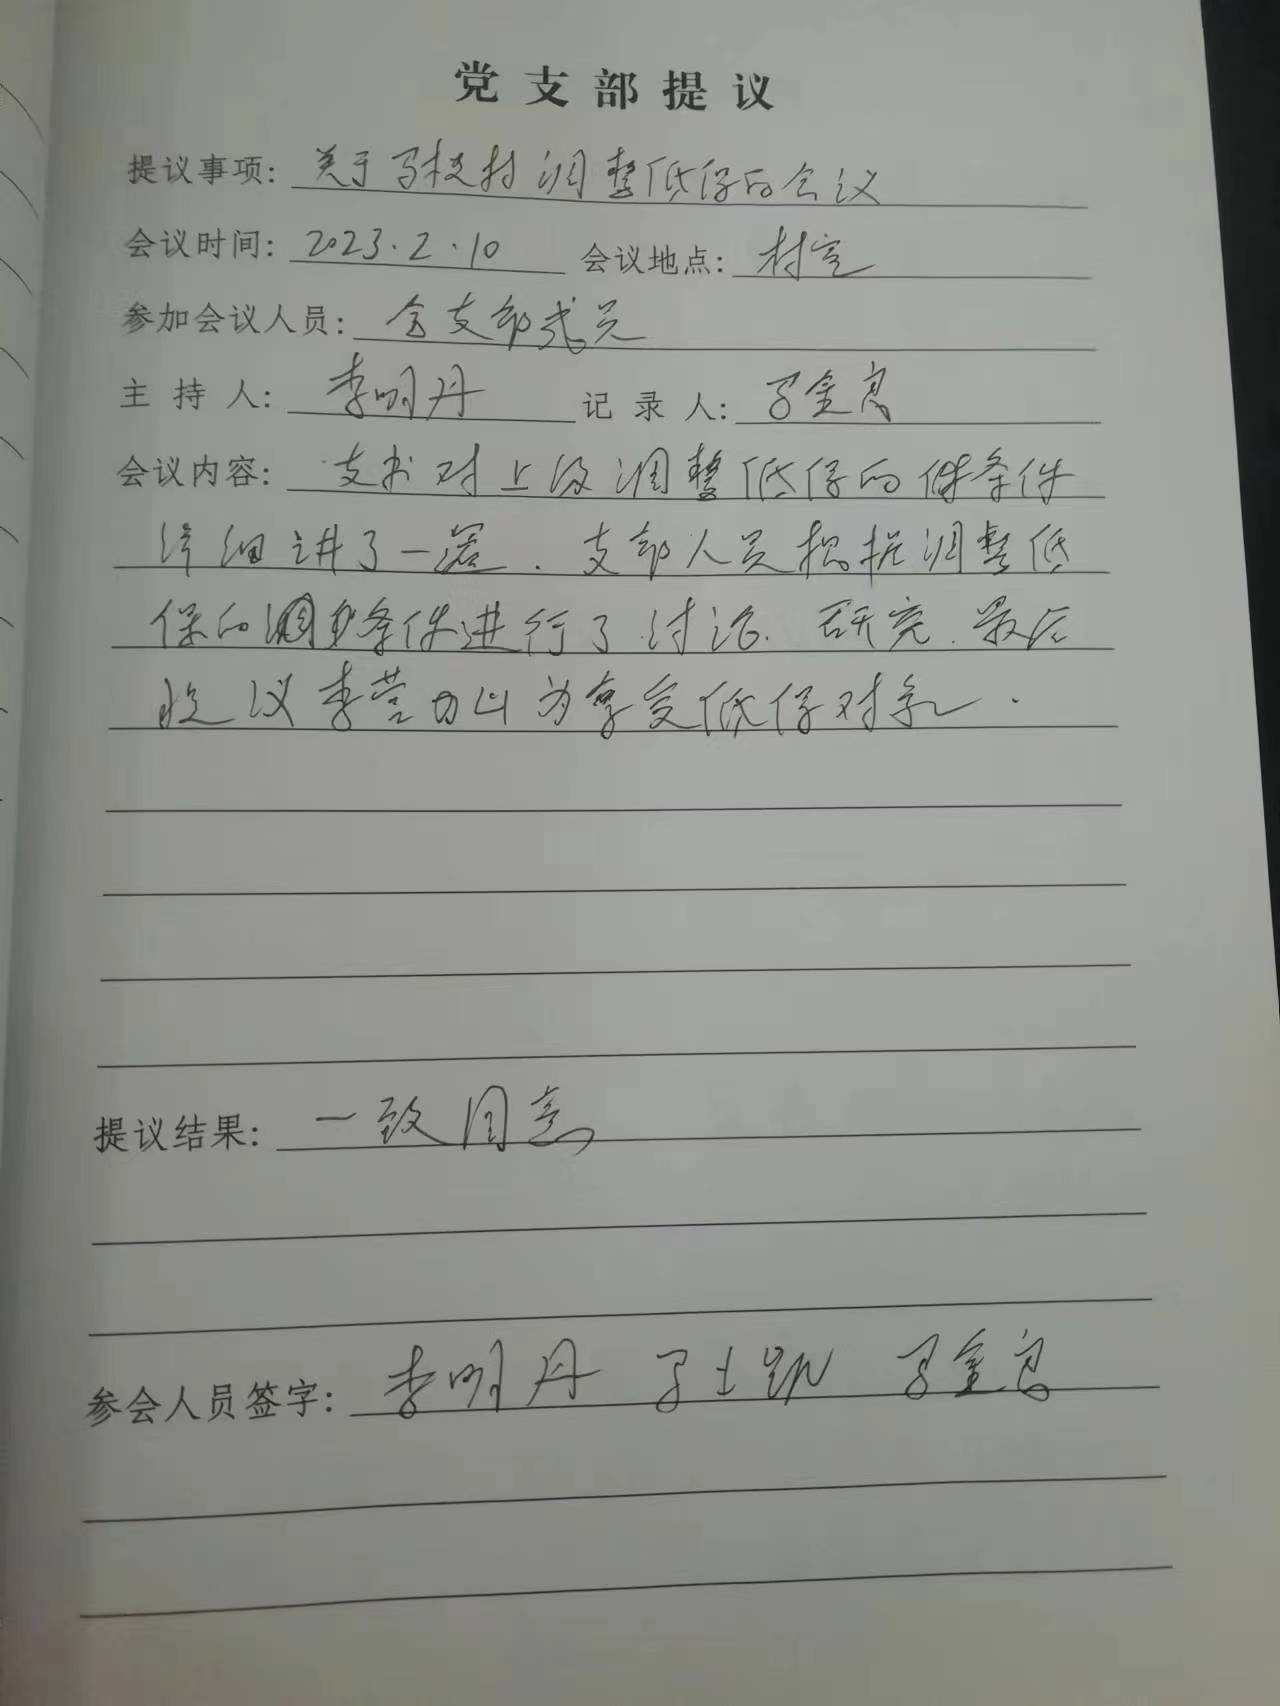 党支部提议
提议事项: 关于马枝村调整低保的会议
会议时间: 2023.2.10 会议地点: 村室
参加会议人员: 全支部成员
主持人: 李明丹 记录人: 马金良
会议内容: 支书对上级调整低保的条件
详细讲了一遍.支部人员根据调整低
保的调条件进行了讨论.研究.最后
提议李营山为享受低保对象.
提议结果: 一致同意
参会人员签字: 李明丹 马士凯 马金良